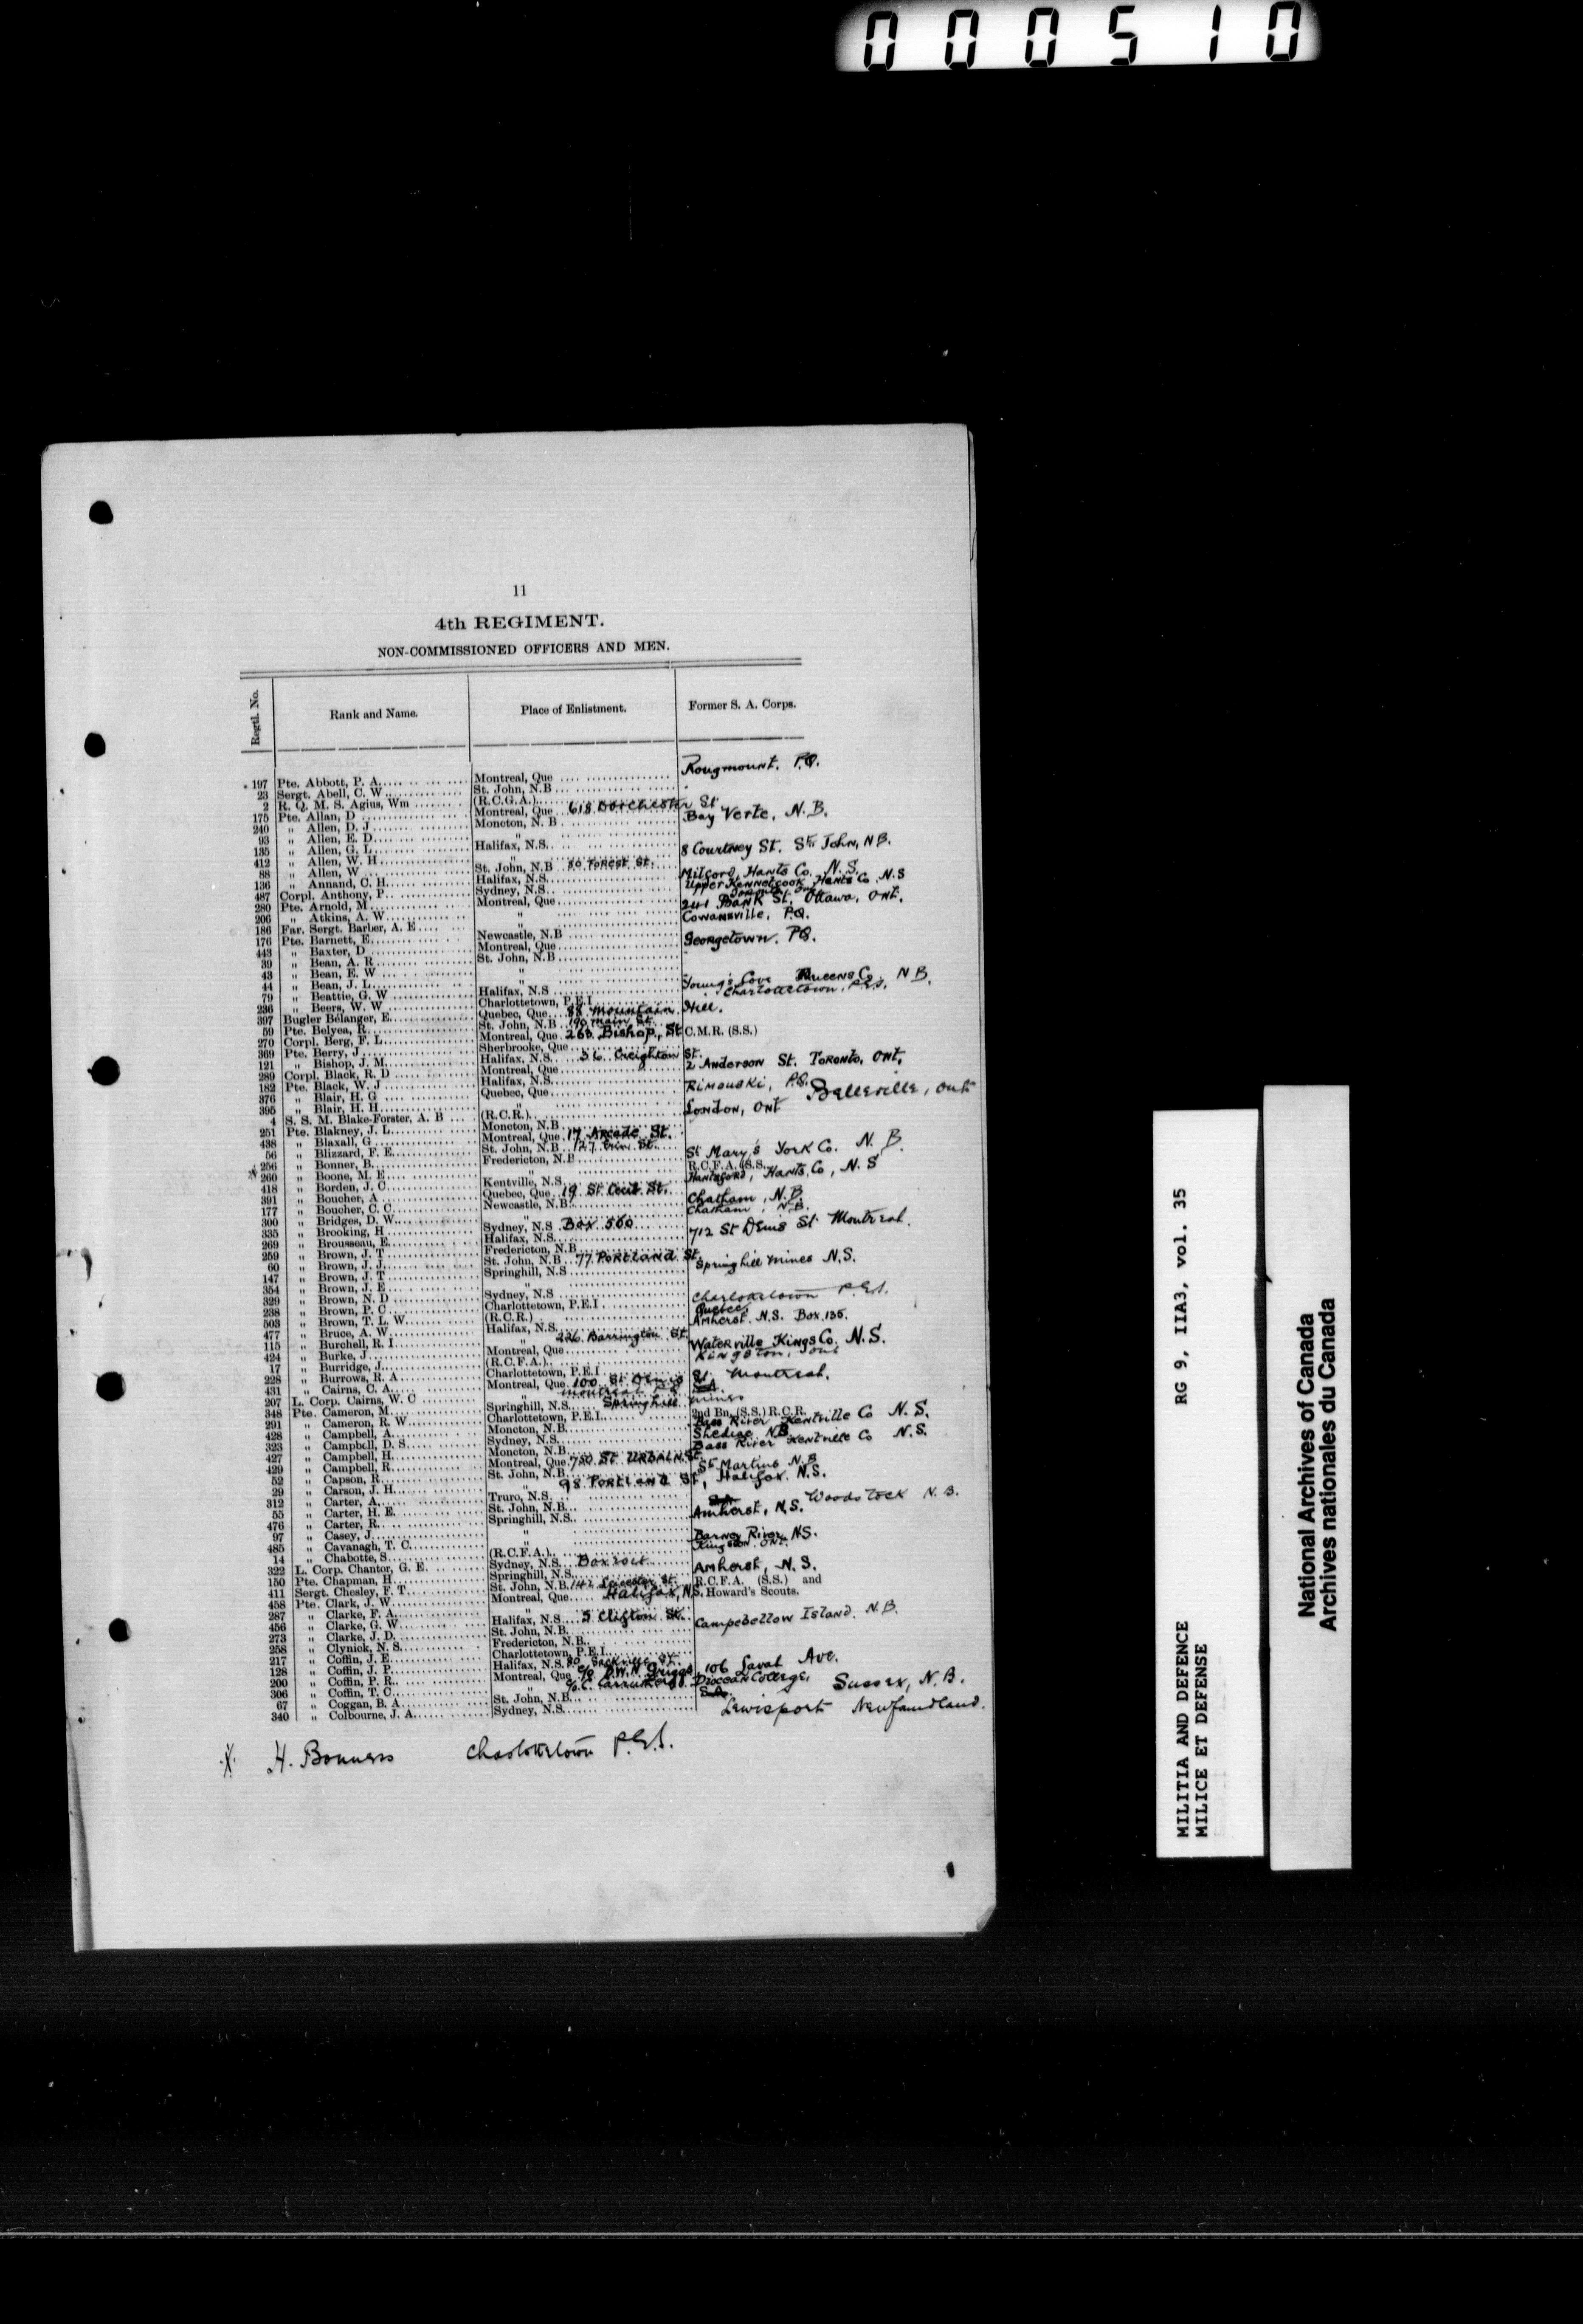 000510
11
4th REGIMENT.
NON-COMMISSIONED OFFICERS AND MEN.
Regtl. No. Rank and Name. Place of Enlistment. Former S. A. Corps.
197 Pte. Abbott, P. A. Montreal, Que Rougmount. P.Q.
23 Sergt. Abell, C. W. St. John, N.B
2 R. Q. M. S. Agius, Wm (R.C.G.A.)
175 Pte. Allan, D Montreal, Que 618 Dorchester St
240 " Allen, D. J Moncton, N. B Bay Verte, N.B.
93 " Allen, E. D "
135 " Allen, G. L Halifax, N.S. 8 Courtney St. St. John, NB.
412 " Allen, W. H "
88 " Allen, W St. John, N.B 80 Forest St.
136 " Annand, C. H. Halifax, N.S. Milford, Hants Co. N.S.
487 Corpl. Anthony, P Sydney, N.S. Upper Kennetcook Hants Co. N.S
280 Pte. Arnold, M Montreal, Que 241 Bank St. Ottawa, Ont.
206 " Atkins, A. W " Cowansville, P.Q.
186 Far. Sergt. Barber, A. E "
176 Pte. Barnett, E Newcastle, N.B Georgetown. PQ.
443 " Baxter, D Montreal, Que
39 " Bean, A. R St. John, N.B
43 " Bean, E. W "
44 " Bean, J. L "
79 " Beattie, G. W Halifax, N.S Young's Cove Queens Co. N B.
236 " Beers, W. W Charlottetown, P.E.I Charlottetown, P.E.I.
397 Bugler Bélanger, E. Quebec, Que 88 Mountain Hill.
59 Pte. Belyea, R. St. John, N.B 190 Main St.
270 Corpl. Berg, F. L Montreal, Que 268 Bishop, St C.M.R. (S.S.)
369 Pte. Berry, J Sherbrooke, Que
121 " Bishop, J. M. Halifax, N.S. 36 Creighton St.
289 Corpl. Black, R. D Montreal, Que 2 Anderson St. Toronto, Ont.
182 Pte. Black, W. J Halifax, N.S.
376 " Blair, H. G Quebec, Que Rimouski, P.Q.
395 " Blair, H. H. " Belleville, Ont
4 S. S. M. Blake-Forster, A. B (R.C.R.) London, Ont
251 Pte. Blakney, J. L Moncton, N.B
438 " Blaxall, G Montreal, Que 17 Arcade St.
56 " Blizzard, F. E St. John, N.B 127 Erin St.
256 " Bonner, B. Fredericton, N.B St Mary's York Co. N.B.
260 " Boone, M. E " R.C.F.A. (S.S.
418 " Borden, J. C Kentville, N.S. Hantsford, Hants. Co, N.S
391 " Boucher, A Quebec, Que 19 St. Cecil St.
177 " Boucher, C. C Newcastle, N.B. Chatham, N.B.
300 " Bridges, D. W. " Chatham, N.B.
335 " Brooking, H Sydney, N.S Box 560
269 " Brousseau, E. Halifax, N.S. 712 St Denis St Montreal.
259 " Brown, J. T Fredericton, N.B
60 " Brown, J. J. St. John, N.B 77 Portland St.
147 " Brown, J. T Springhill, N.S Springhill Mines N.S.
354 " Brown, J. E "
329 " Brown, N. D Sydney, N.S
238 " Brown, P. C Charlottetown, P.E.I Charlottetown P.E.I.
503 " Brown, T. L. W (R.C.R.) Quebec
477 " Bruce, A. W Halifax, N.S. Amherst. N.S. Box 135.
115 " Burchell, R. I " 226 Barrington St.
424 " Burke, J Montreal, Que Waterville Kings Co. N.S.
17 " Burridge, J. (R.C.F.A.) Kingston, Ont
228 " Burrows, R. A Charlottetown, P.E.I
431 " Cairns, C. A Montreal, Que 100 St. Denis St. Montreal.
207 L. Corp. Cairns, W. C " Montreal
348 Pte. Cameron, M Springhill, N.S. Springhill Mines
291 " Cameron, R. W Charlottetown, P.E.I. 2nd Bn. (S.S.) R.C.R.
428 " Campbell, A Moncton, N.B Bass River Kentville Co N.S.
323 " Campbell, D. S Sydney, N.S. Shediac N.B
427 " Campbell, H. Moncton, N.B Bass River Kentville Co N.S.
429 " Campbell, R Montreal, Que 780 St. Urbain St.
52 " Capson, R St. John, N.B St Martins N.B
29 " Carson, J. H. " 98 Portland St, Halifax. N.S.
312 " Carter, A. Truro, N.S.
55 " Carter, H. E St. John, N.B. Woodstock N.B.
476 " Carter, R. Springhill, N.S. Amherst, N.S.
97 " Casey, J. "
485 " Cavanagh, T. C " Barney River NS.
14 " Chabotte, S (R.C.F.A.) Kingston. Ont.
322 L. Corp. Chantor, G. E Sydney, N.S.
150 Pte. Chapman, H Springhill, N.S. Amherst, N.S.
411 Sergt. Chesley, F. T St. John, N.B. 142 Leinster St. R.C.F.A. (S.S.) and
458 Pte. Clark, J. W Montreal, Que Halifax, N.S. Howard's Scouts.
287 " Clarke, F. A. "
456 " Clarke, G. W Halifax, N.S. 5 Clifton St.
273 " Clarke, J. D. St. John, N.B. Campebellow Island. N.B.
258 " Clynick, N. S. Fredericton, N.B.
217 " Coffin, J. E Charlottetown, P.E.I.
128 " Coffin, J. P Halifax, N.S. 80 Sackville St.
200 " Coffin, P. R Montreal, Que c/o D.W.N. Griggs 106 Laval Ave.
306 " Coffin, T. C " c/o C. Carruthers Diocesan College,
67 " Coggan, B. A St. John, N.B. Sussex, N.B.
340 " Colbourne, J. A Sydney, N.S. Lewisport Newfoundland.
X H. Bonness Charlottetown P.E.I.
MILITIA AND DEFENCE RG 9, IIA3, vol. 35
MILICE ET DEFENSE
National Archives of Canada
Archives nationales du Canada